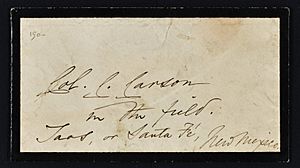 150-
Col. C. Carson
in the field.
Taos, or Santa Fé,
New Mexico